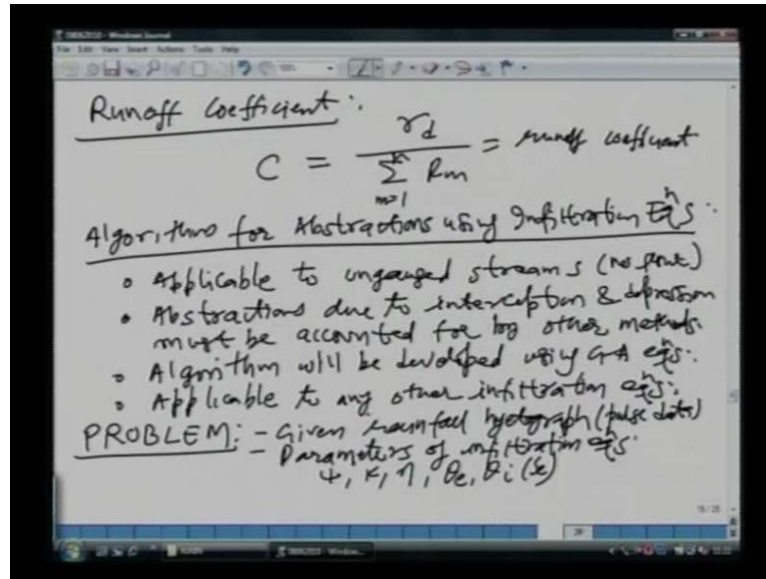 Windows Journal
File Edit View Insert Actions Tools Help
Runoff Coefficient:
C = r_d / Σ_{m=1}^{M} R_m = runoff coefficient
Algorithms for Abstractions using Infiltration Eqⁿs:
• Applicable to ungauged streams (no
• Abstractions due to interception & depression
must be accounted for by other methods.
• Algorithm will be developed using GA eqⁿs:
• Applicable to any other infiltration eqⁿs:
PROBLEM: - Given rainfall hyetograph (pulse data)
- Parameters of infiltration eqⁿs:
ψ, K, η, θe, θi (Se)